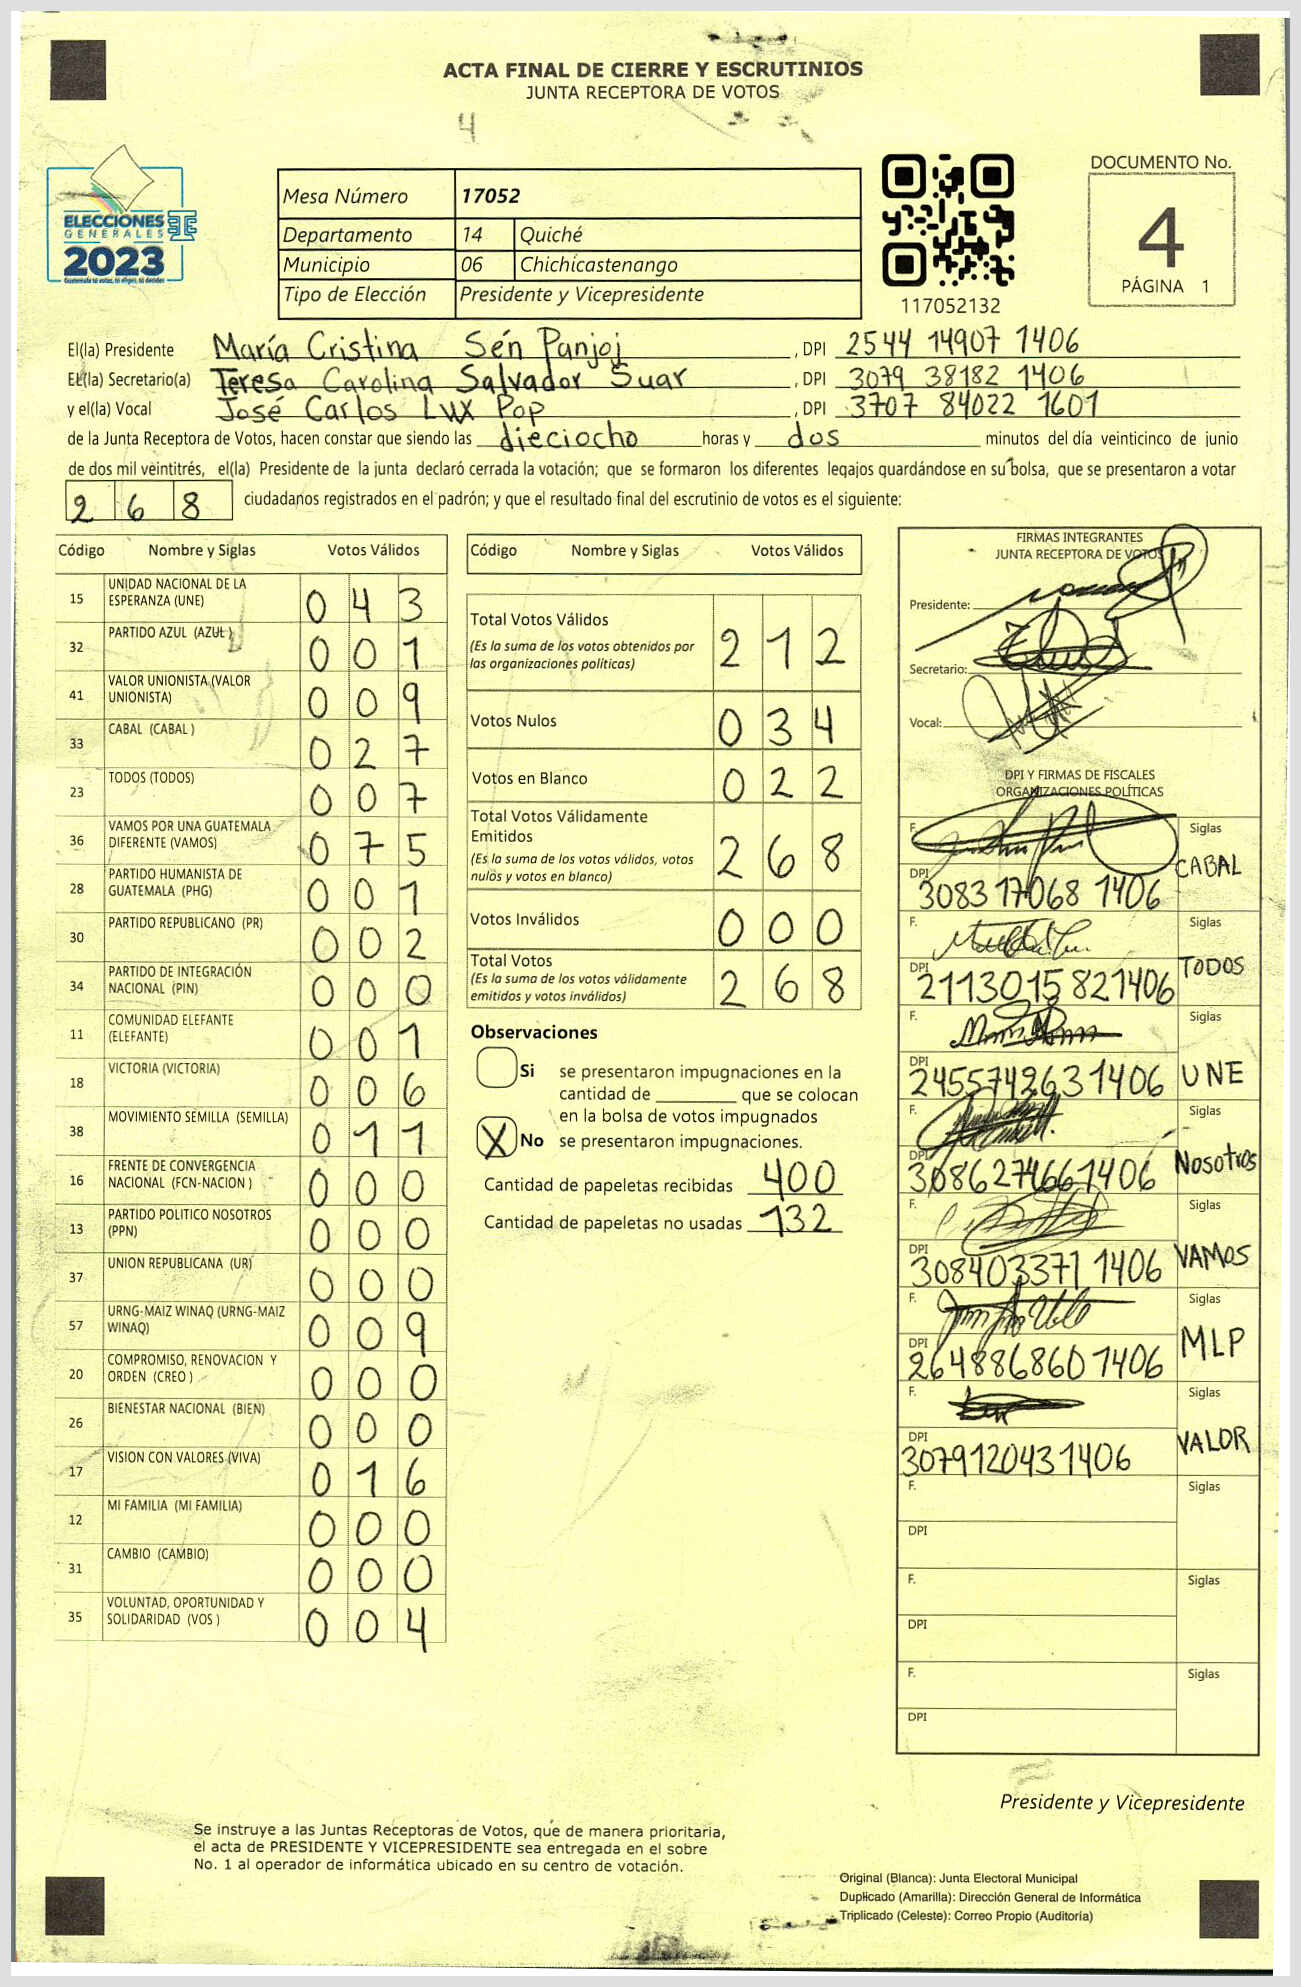 ACTA FINAL DE CIERRE Y ESCRUTINIOS
JUNTA RECEPTORA DE VOTOS
4
ELECCIONES
GENERALES
2023
Guatemala tú votas, tú eliges, tú decides
Mesa Número 17052
Departamento 14 Quiché
Municipio 06 Chichicastenango
Tipo de Elección Presidente y Vicepresidente
117052132
DOCUMENTO No.
4
PÁGINA 1
El(la) Presidente María Cristina Sén Panjoj , DPI 2544 14907 1406
EL(la) Secretario(a) Teresa Carolina Salvador Suar , DPI 3079 38182 1406
y el(la) Vocal José Carlos Lux Pop , DPI 3707 84022 1601
de la Junta Receptora de Votos, hacen constar que siendo las dieciocho horas y dos minutos del día veinticinco de junio
de dos mil veintitrés, el(la) Presidente de la junta declaró cerrada la votación; que se formaron los diferentes legajos guardándose en su bolsa, que se presentaron a votar
268 ciudadanos registrados en el padrón; y que el resultado final del escrutinio de votos es el siguiente:
Código Nombre y Siglas Votos Válidos
15 UNIDAD NACIONAL DE LA ESPERANZA (UNE) 043
32 PARTIDO AZUL (AZUL) 001
41 VALOR UNIONISTA (VALOR UNIONISTA) 009
33 CABAL (CABAL) 027
23 TODOS (TODOS) 007
36 VAMOS POR UNA GUATEMALA DIFERENTE (VAMOS) 075
28 PARTIDO HUMANISTA DE GUATEMALA (PHG) 001
30 PARTIDO REPUBLICANO (PR) 002
34 PARTIDO DE INTEGRACIÓN NACIONAL (PIN) 000
11 COMUNIDAD ELEFANTE (ELEFANTE) 001
18 VICTORIA (VICTORIA) 006
38 MOVIMIENTO SEMILLA (SEMILLA) 011
16 FRENTE DE CONVERGENCIA NACIONAL (FCN-NACION) 000
13 PARTIDO POLITICO NOSOTROS (PPN) 000
37 UNION REPUBLICANA (UR) 000
57 URNG-MAIZ WINAQ (URNG-MAIZ WINAQ) 009
20 COMPROMISO, RENOVACION Y ORDEN (CREO) 000
26 BIENESTAR NACIONAL (BIEN) 000
17 VISION CON VALORES (VIVA) 016
12 MI FAMILIA (MI FAMILIA) 000
31 CAMBIO (CAMBIO) 000
35 VOLUNTAD, OPORTUNIDAD Y SOLIDARIDAD (VOS) 004
Código Nombre y Siglas Votos Válidos
Total Votos Válidos 212
(Es la suma de los votos obtenidos por
las organizaciones políticas)
Votos Nulos 034
Votos en Blanco 022
Total Votos Válidamente
Emitidos 268
(Es la suma de los votos válidos, votos
nulos y votos en blanco)
Votos Inválidos 000
Total Votos 268
(Es la suma de los votos válidamente
emitidos y votos inválidos)
Observaciones
Si se presentaron impugnaciones en la
cantidad de ________ que se colocan
en la bolsa de votos impugnados
X No se presentaron impugnaciones.
Cantidad de papeletas recibidas 400
Cantidad de papeletas no usadas 132
FIRMAS INTEGRANTES
JUNTA RECEPTORA DE VOTOS
Presidente:
Secretario:
Vocal:
DPI Y FIRMAS DE FISCALES
ORGANIZACIONES POLÍTICAS
F. Siglas
DPI 3083 17068 1406 CABAL
F. Siglas
DPI 2113015821406 TODOS
F. Siglas
DPI 2455742631406 UNE
F. Siglas
DPI 3086274661406 Nosotros
F. Siglas
DPI 308403371 1406 VAMOS
F. Siglas
DPI 264886860 1406 MLP
F. Siglas
DPI 3079120431406 VALOR
F. Siglas
DPI
F. Siglas
DPI
F. Siglas
DPI
Presidente y Vicepresidente
Se instruye a las Juntas Receptoras de Votos, que de manera prioritaria,
el acta de PRESIDENTE Y VICEPRESIDENTE sea entregada en el sobre
No. 1 al operador de informática ubicado en su centro de votación.
Original (Blanca): Junta Electoral Municipal
Duplicado (Amarilla): Dirección General de Informática
Triplicado (Celeste): Correo Propio (Auditoría)